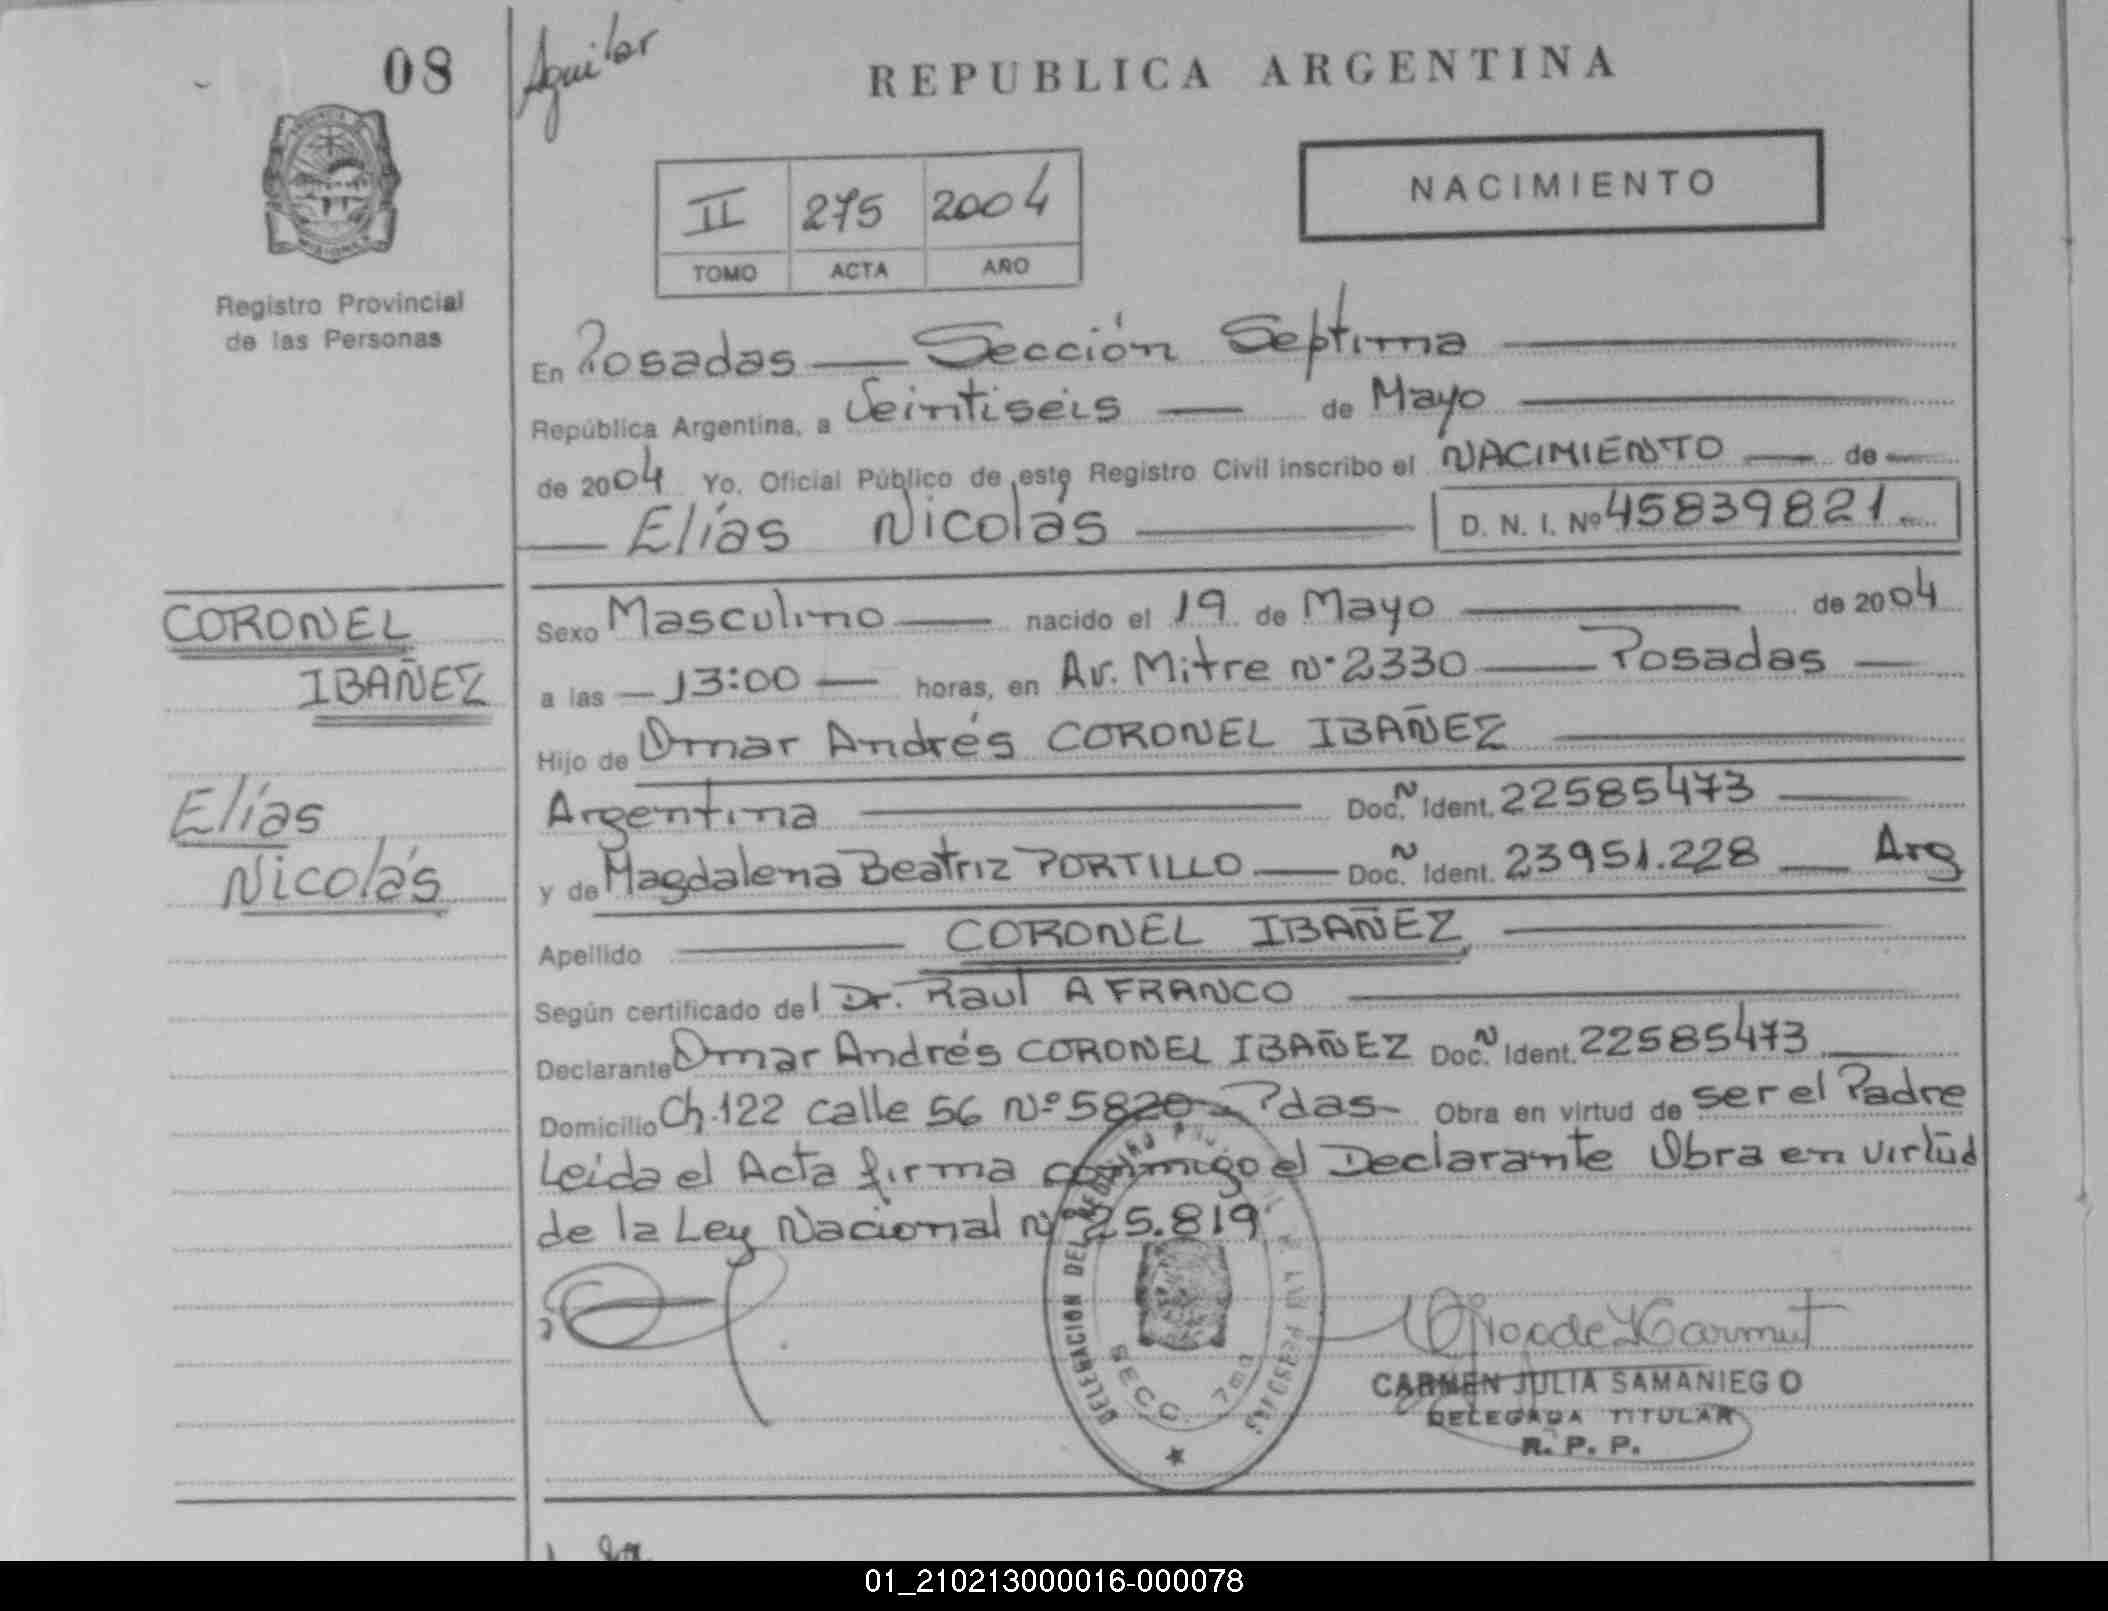 08
Aguilar
REPUBLICA ARGENTINA
II 275 2004
TOMO ACTA AÑO
NACIMIENTO
Registro Provincial
de las Personas
En Posadas — Sección Septima
República Argentina, a Veintiseis — de Mayo
de 2004 Yo, Oficial Público de este Registro Civil inscribo el NACIMIENTO — de
Elías Nicolás D. N. I. Nº 45839821
CORONEL
IBAÑEZ
Elías
Nicolás
Sexo Masculino — nacido el 19 de Mayo — de 2004
a las — 13:00 — horas, en Av. Mitre Nº 2330 — Posadas —
Hijo de Omar Andrés CORONEL IBAÑEZ
Argentina — Doc. N Ident. 22585473 —
y de Magdalena Beatriz PORTILLO — Doc. N Ident. 23951.228 — Arg
Apellido — CORONEL IBAÑEZ —
Según certificado del Dr. Raul A FRANCO
Declarante Omar Andrés CORONEL IBAÑEZ Doc. N Ident. 22585473
Domicilio Ch. 122 calle 56 Nº 5820 - Pdas- Obra en virtud de ser el Padre
Leida el Acta firma conmigo el Declarante Obra en virtud
de la Ley Nacional Nº 25.819
DELEGACION DEL REGISTRO
SECC. 7ma
CARMEN JULIA SAMANIEGO
DELEGADA TITULAR
R. P. P.
01_210213000016-000078